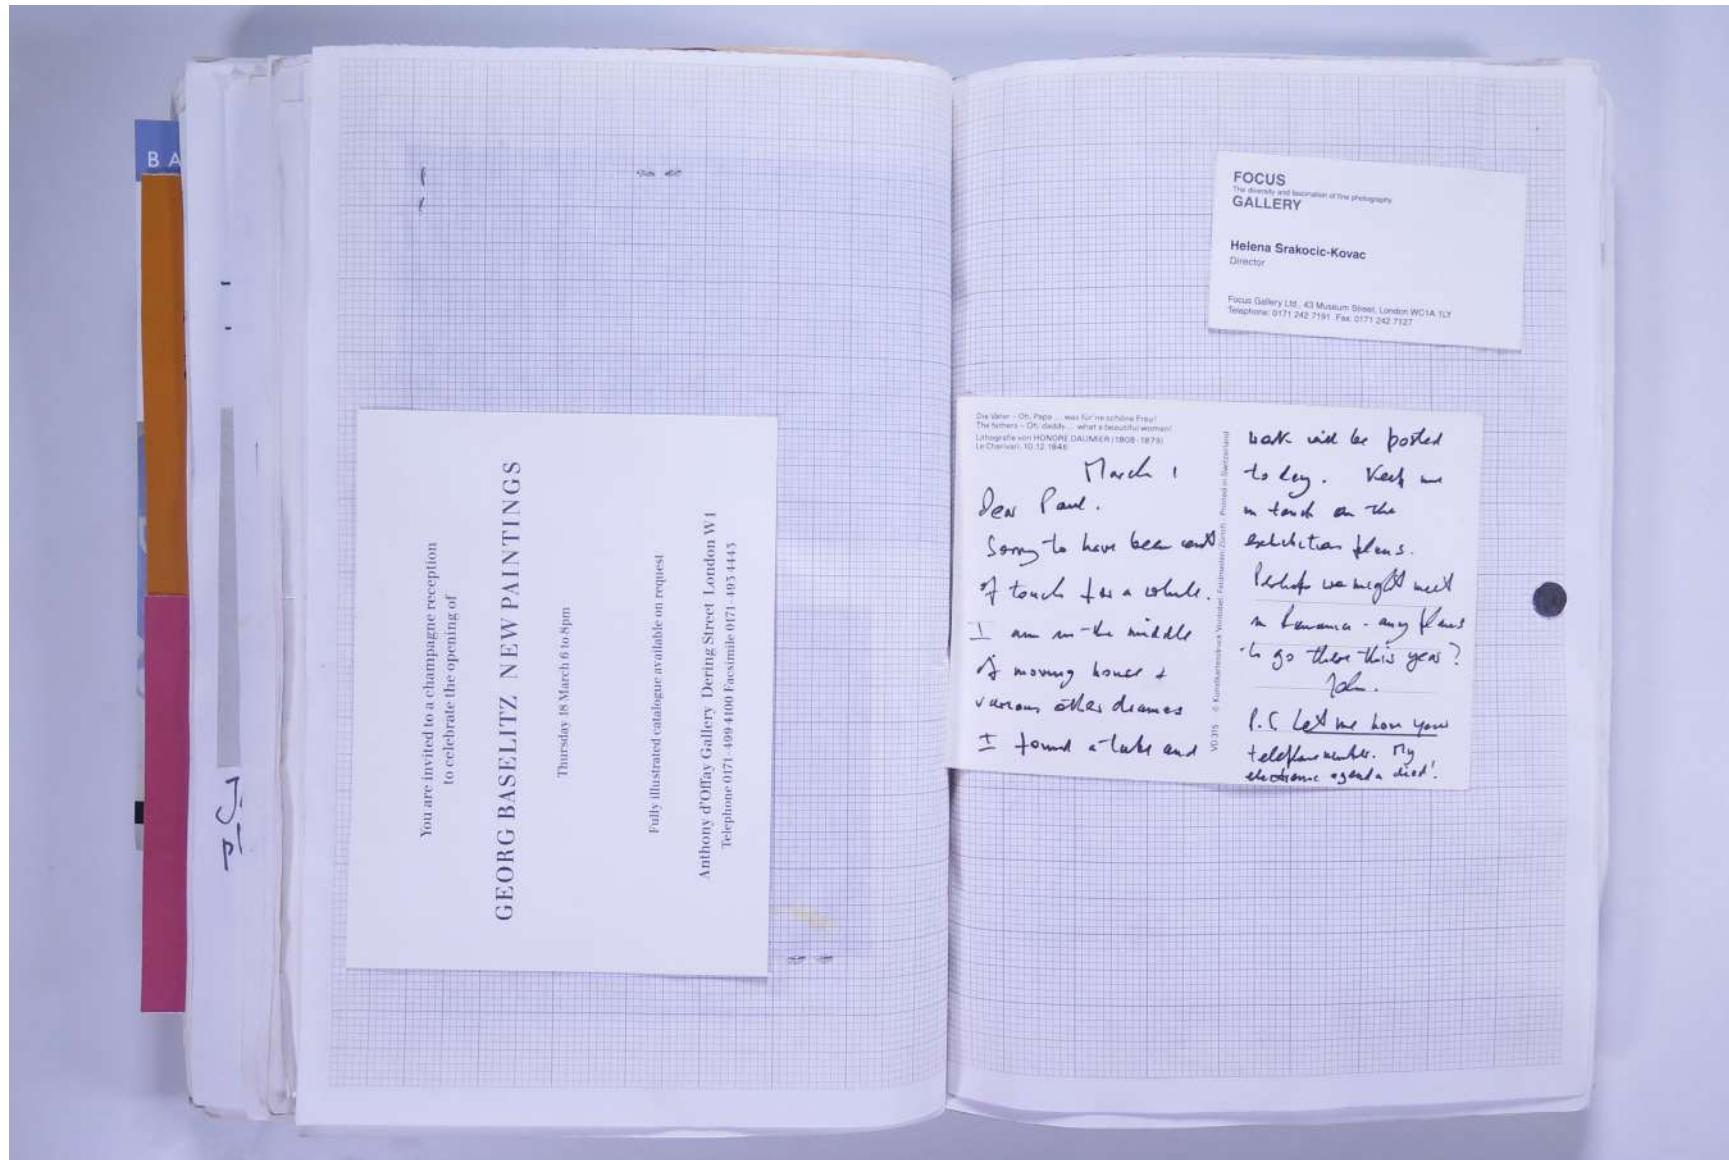 BA
You are invited to a champagne reception
to celebrate the opening of
GEORG BASELITZ NEW PAINTINGS
Thursday 18 March 6 to 8pm
Fully illustrated catalogue available on request
Anthony d'Offay Gallery Dering Street London W1
Telephone 0171-499 4100 Facsimile 0171-493 4443
FOCUS
The diversity and fascination of fine photography
GALLERY
Helena Srakocic-Kovac
Director
Focus Gallery Ltd., 43 Museum Street, London WC1A 1LY
Telephone: 0171 242 7191 Fax: 0171 242 7127
Die Väter – Oh, Papa ... was für'ne schöne Frau!
The fathers – Oh, daddy ... what a beautiful woman!
Lithografie von HONORE DAUMIER (1808-1879)
Le Charivari, 10.12.1846
March 1
Dear Paul.
Sorry to have been out
of touch for a while.
I am in the middle
of moving house +
various other dramas
I found a tube and
VD 315 © Kunstkartendruck Vontobel, Feldmeilen/Zürich · Printed in Switzerland
work will be posted
to day. Keep me
in touch on the
exhibition plans.
Perhaps we might meet
in - any plans
to go there this year?
John.
P.S Let me have your
telephone number. My
electronic agenda died!